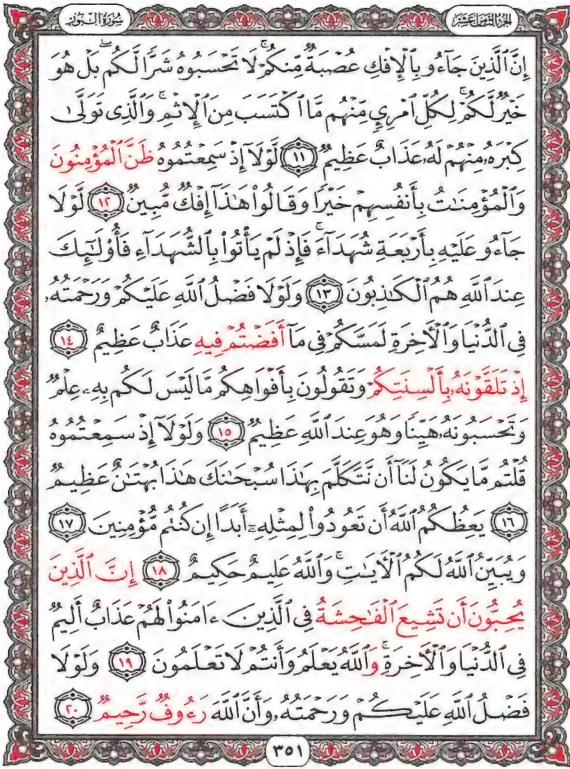 الجزء الثامن عشر سورة النور
إِنَّ ٱلَّذِينَ جَآءُو بِٱلْإِفْكِ عُصْبَةٌ مِّنكُمْ ۚ لَا تَحْسَبُوهُ شَرًّا لَّكُم ۖ بَلْ هُوَ
خَيْرٌ لَّكُمْ ۚ لِكُلِّ ٱمْرِئٍ مِّنْهُم مَّا ٱكْتَسَبَ مِنَ ٱلْإِثْمِ ۚ وَٱلَّذِى تَوَلَّىٰ
كِبْرَهُۥ مِنْهُمْ لَهُۥ عَذَابٌ عَظِيمٌ ١١ لَّوْلَآ إِذْ سَمِعْتُمُوهُ ظَنَّ ٱلْمُؤْمِنُونَ
وَٱلْمُؤْمِنَٰتُ بِأَنفُسِهِمْ خَيْرًا وَقَالُوا۟ هَٰذَآ إِفْكٌ مُّبِينٌ ١٢ لَّوْلَا
جَآءُو عَلَيْهِ بِأَرْبَعَةِ شُهَدَآءَ ۚ فَإِذْ لَمْ يَأْتُوا۟ بِٱلشُّهَدَآءِ فَأُو۟لَٰٓئِكَ
عِندَ ٱللَّهِ هُمُ ٱلْكَٰذِبُونَ ١٣ وَلَوْلَا فَضْلُ ٱللَّهِ عَلَيْكُمْ وَرَحْمَتُهُۥ
فِى ٱلدُّنْيَا وَٱلْأَخِرَةِ لَمَسَّكُمْ فِى مَآ أَفَضْتُمْ فِيهِ عَذَابٌ عَظِيمٌ ١٤
إِذْ تَلَقَّوْنَهُۥ بِأَلْسِنَتِكُمْ وَتَقُولُونَ بِأَفْوَاهِكُم مَّا لَيْسَ لَكُم بِهِۦ عِلْمٌ
وَتَحْسَبُونَهُۥ هَيِّنًا وَهُوَ عِندَ ٱللَّهِ عَظِيمٌ ١٥ وَلَوْلَآ إِذْ سَمِعْتُمُوهُ
قُلْتُم مَّا يَكُونُ لَنَآ أَن نَّتَكَلَّمَ بِهَٰذَا سُبْحَٰنَكَ هَٰذَا بُهْتَٰنٌ عَظِيمٌ
١٦ يَعِظُكُمُ ٱللَّهُ أَن تَعُودُوا۟ لِمِثْلِهِۦٓ أَبَدًا إِن كُنتُم مُّؤْمِنِينَ ١٧
وَيُبَيِّنُ ٱللَّهُ لَكُمُ ٱلْأَيَٰتِ ۚ وَٱللَّهُ عَلِيمٌ حَكِيمٌ ١٨ إِنَّ ٱلَّذِينَ
يُحِبُّونَ أَن تَشِيعَ ٱلْفَٰحِشَةُ فِى ٱلَّذِينَ ءَامَنُوا۟ لَهُمْ عَذَابٌ أَلِيمٌ
فِى ٱلدُّنْيَا وَٱلْأَخِرَةِ ۚ وَٱللَّهُ يَعْلَمُ وَأَنتُمْ لَا تَعْلَمُونَ ١٩ وَلَوْلَا
فَضْلُ ٱللَّهِ عَلَيْكُمْ وَرَحْمَتُهُۥ وَأَنَّ ٱللَّهَ رَءُوفٌ رَّحِيمٌ ٢٠
٣٥١